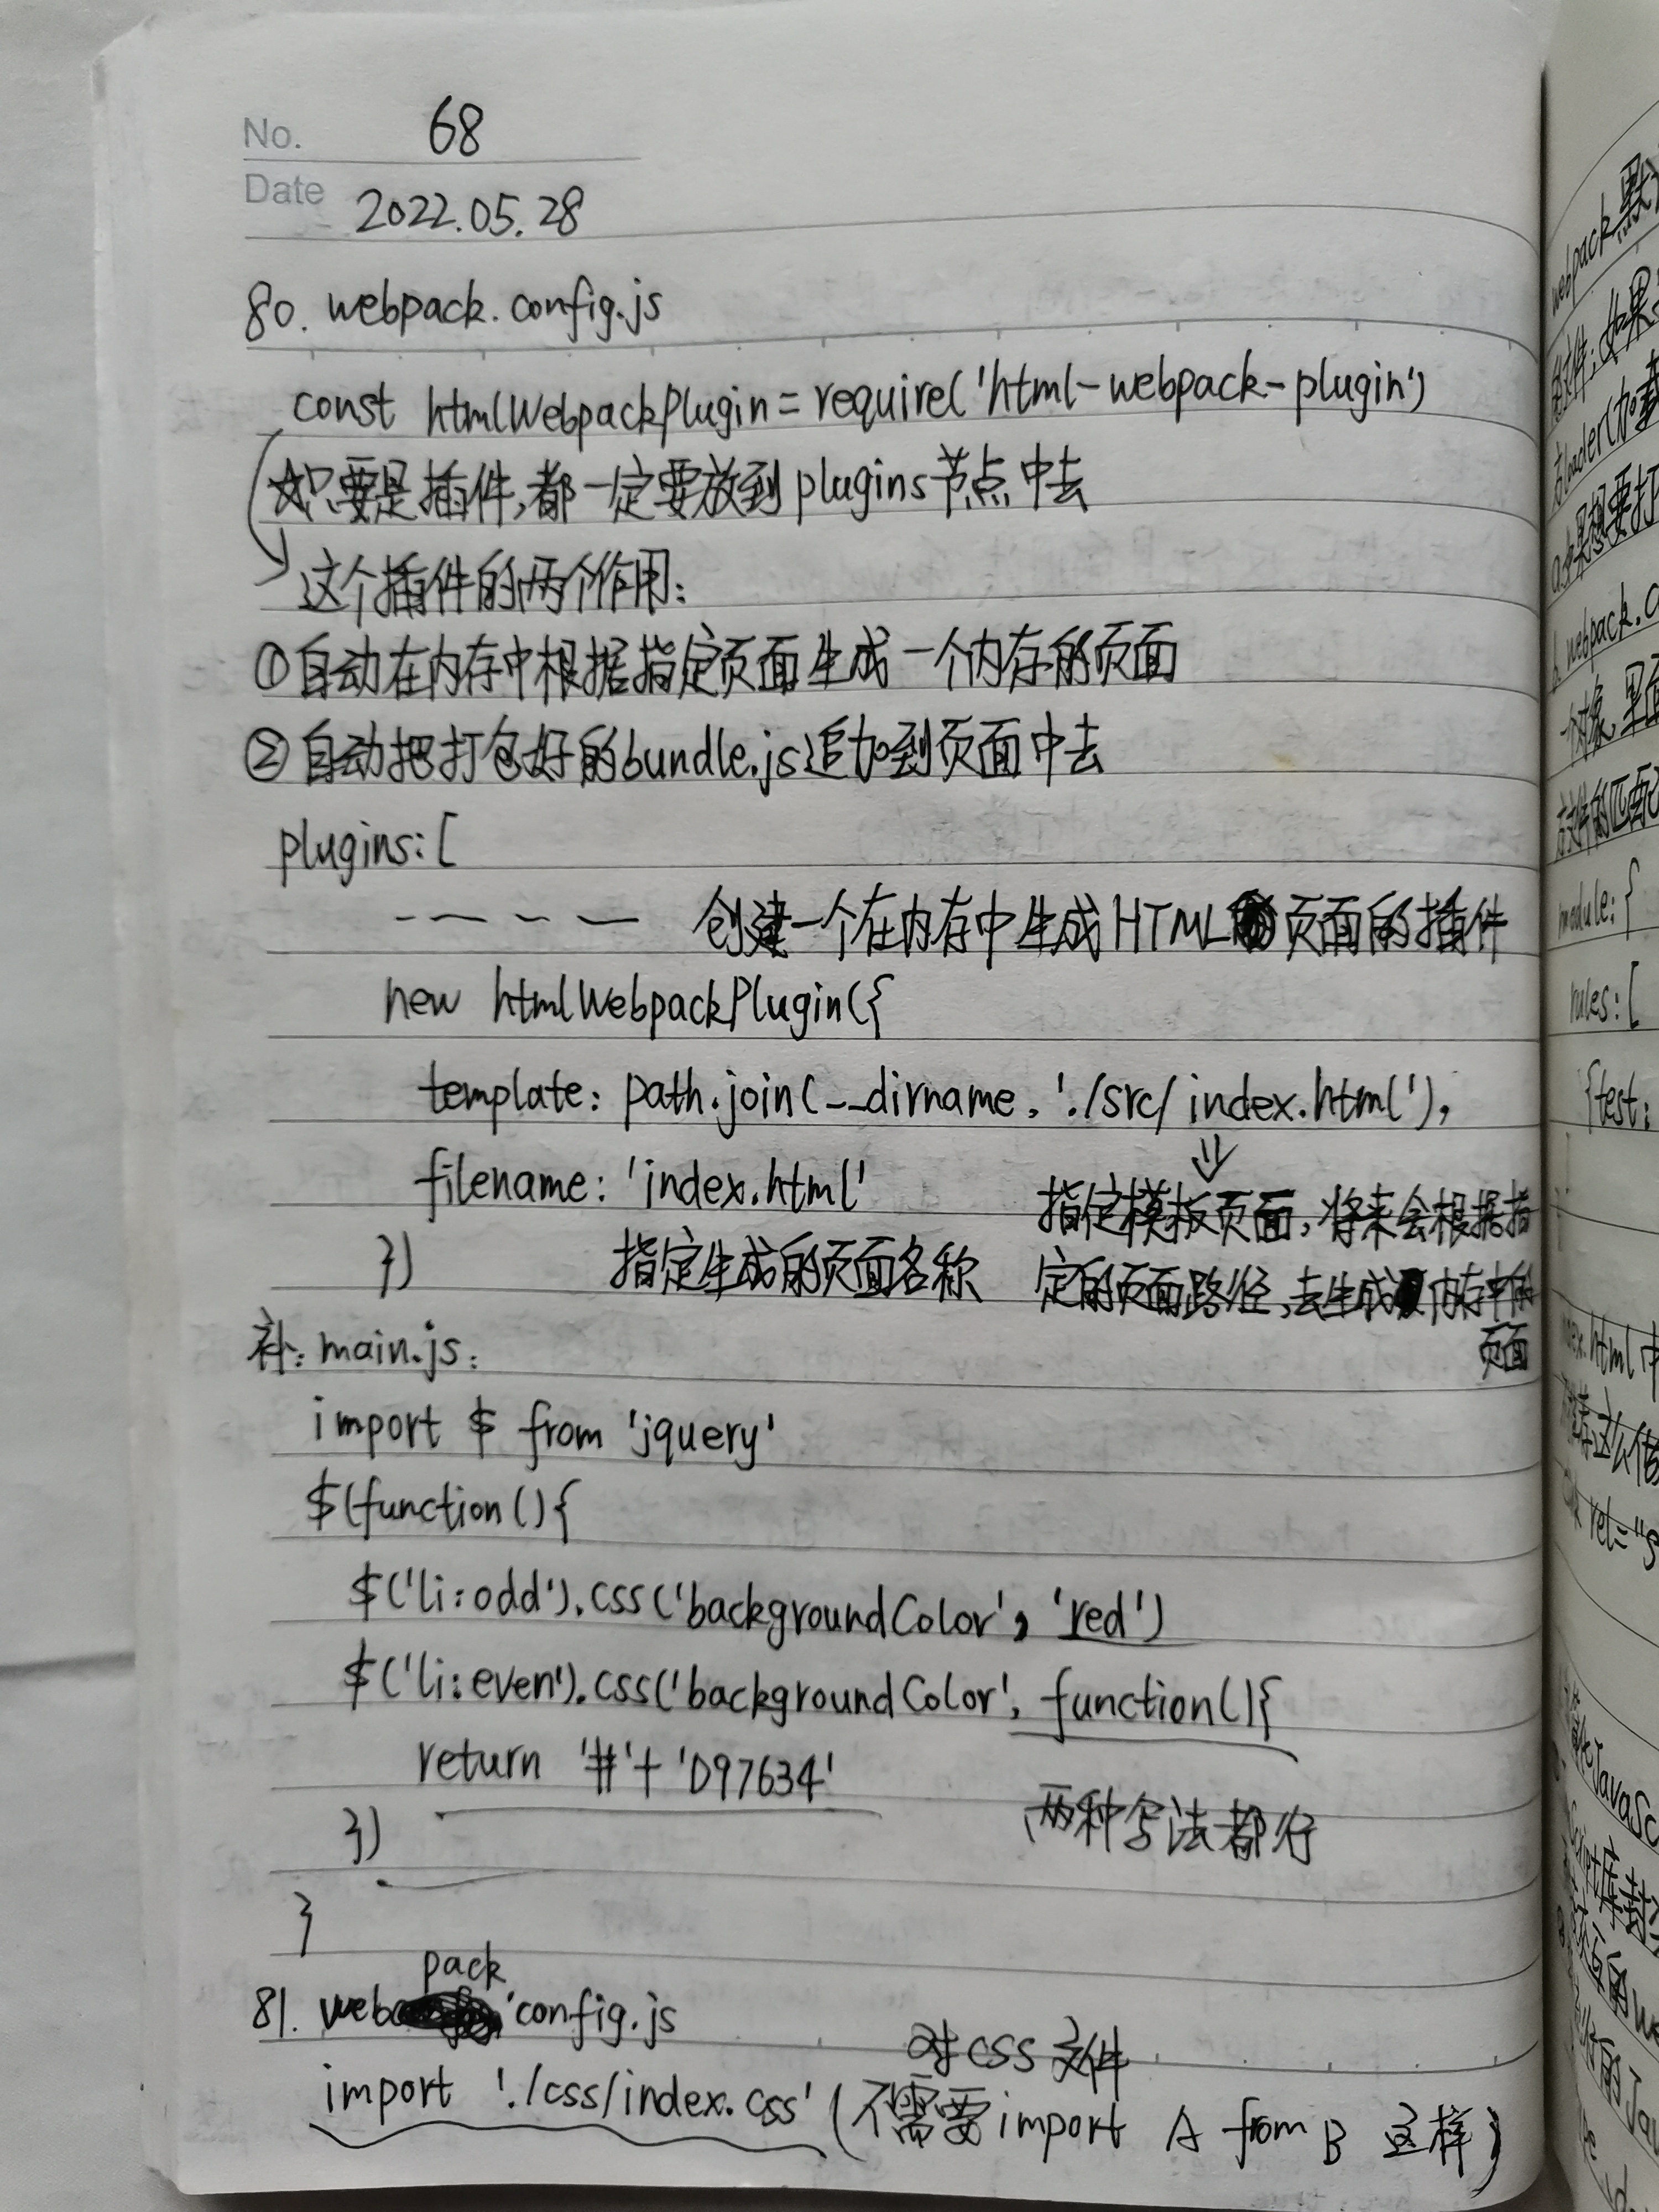 No. 68
Date 2022.05.28
80. webpack.config.js
const htmlWebpackPlugin = require('html-webpack-plugin')
☆只要是插件,都一定要放到plugins节点中去
这个插件的两个作用:
①自动在内存中根据指定页面生成一个内存的页面
②自动把打包好的bundle.js追加到页面中去
plugins:[
---- 创建一个在内存中生成HTML页面的插件
new htmlWebpackPlugin({
template: path.join(__dirname, './src/index.html'),
filename: 'index.html'
指定模板页面,将来会根据指
}) 指定生成的页面名称
定的页面路径,去生成内存中的
页面
补: main.js:
import $ from 'jquery'
$(function(){
$('li:odd').css('backgroundColor', 'red')
$('li:even').css('backgroundColor', function(){
return '#'+'D97634'
}) 两种写法都行
}
81. webpack.config.js
对css文件
import './css/index.css' (不需要import A from B 这样)
webpack默
的文件;如果
方loader(加载
a.如果想要打
b.webpack.c
一个对象,里面
方文件的匹配
module:{
rules:[
{test:
index.html中
rel="s